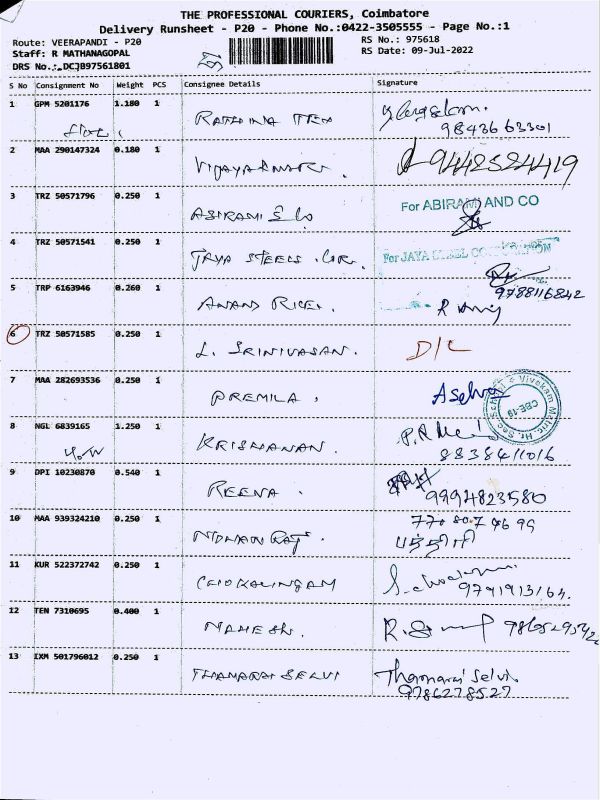 THE PROFESSIONAL COURIERS, Coimbatore
Delivery Runsheet - P20 - Phone No.:0422-3505555 - Page No.:1
Route: VEERAPANDI - P20
RS No.: 975618
Staff: R MATHANAGOPAL
RS Date: 09-Jul-2022
DRS No.: DCJ097561801
S No Consignment No Weight PCS Consignee Details Signature
1 GPM 5201176 1.180 1 RATHINA
9843663301
2 MAA 290147324 0.180 1 VIJAYAKUMAR. 9442524419
3 TRZ 50571796 0.250 1 ABIRAMI & Co For ABIRAMI AND CO
4 TRZ 50571541 0.250 1 JAYA STEELS . For JAYA STEEL CORPORATION
9788116842
5 TRP 6163946 0.260 1 ANAND RICE.
6 TRZ 50571585 0.250 1 L. SRINIVASAN. D/L
7 MAA 282693536 0.250 1 PREMILA. Aselva
Vivekam Matric. Hr. Sec. School CBE-19
8 NGL 6839165 1.250 1 KRISHNANAN.
8838411016
9 DPI 10230870 0.540 1 REENA. 9994823580
10 MAA 939324210 0.250 1
11 KUR 522372742 0.250 1 CHOKALINGAM
9791913164.
12 TEN 7310695 0.400 1 MAHESH.
13 IXM 501796012 0.250 1 THAMARAI SELVI Thamarai Selvi
9786278527